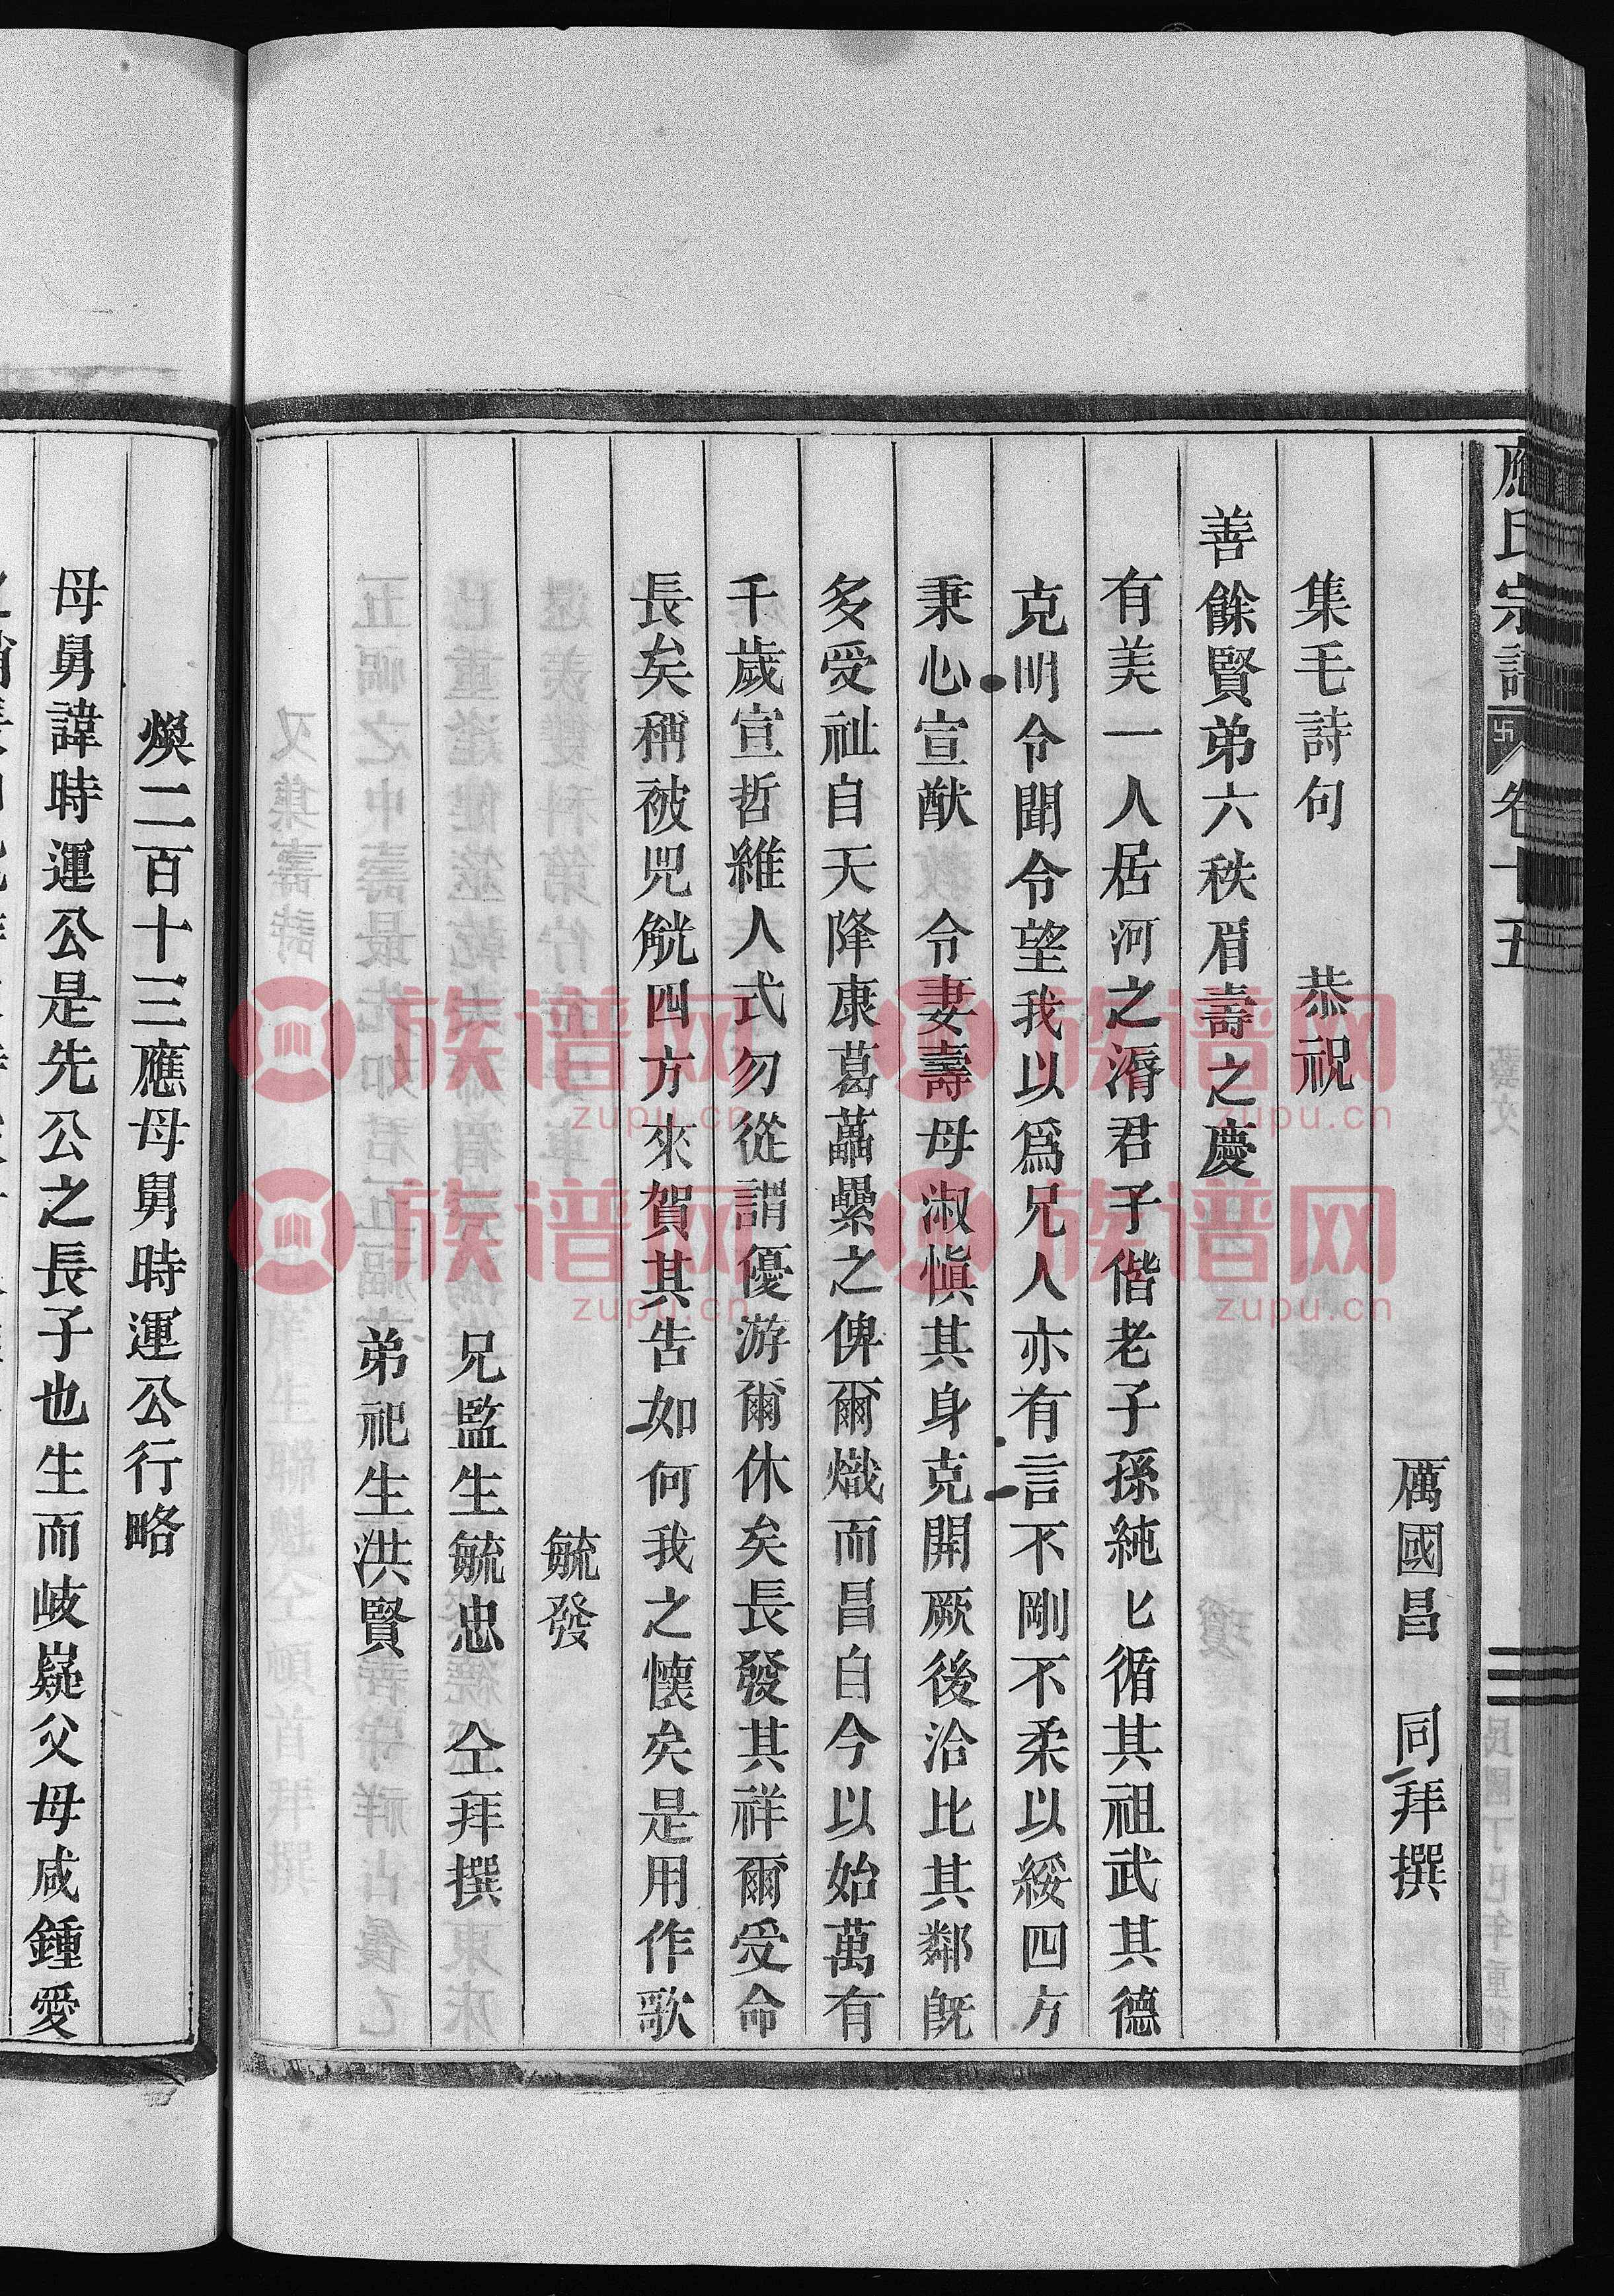 應氏宗譜 卷十五
厲國昌 同拜撰
集毛詩句 恭祝
善餘賢弟六秩眉壽之慶
有美一人居河之漘君子偕老子孫純匕循其祖武其德
克明令聞令望我以爲兄人亦有言不剛不柔以綏四方
秉心宣猷 令妻壽母淑愼其身克開厥後洽比其鄰旣
多受祉自天降康葛藟纍之俾爾熾而昌自今以始萬有
千歲宣哲維人式勿從謂優游爾休矣長發其祥爾受命
長矣稱彼兕觥四方來賀其告如何我之懷矣是用作歌
毓發
兄監生毓忠 仝拜撰
弟祀生洪賢
煥二百十三應母舅時運公行略
母舅諱時運公是先公之長子也生而岐嶷父母咸鍾愛
族谱网
zupu.cn
族谱网
zupu.cn
族谱网
zupu.cn
族谱网
zupu.cn